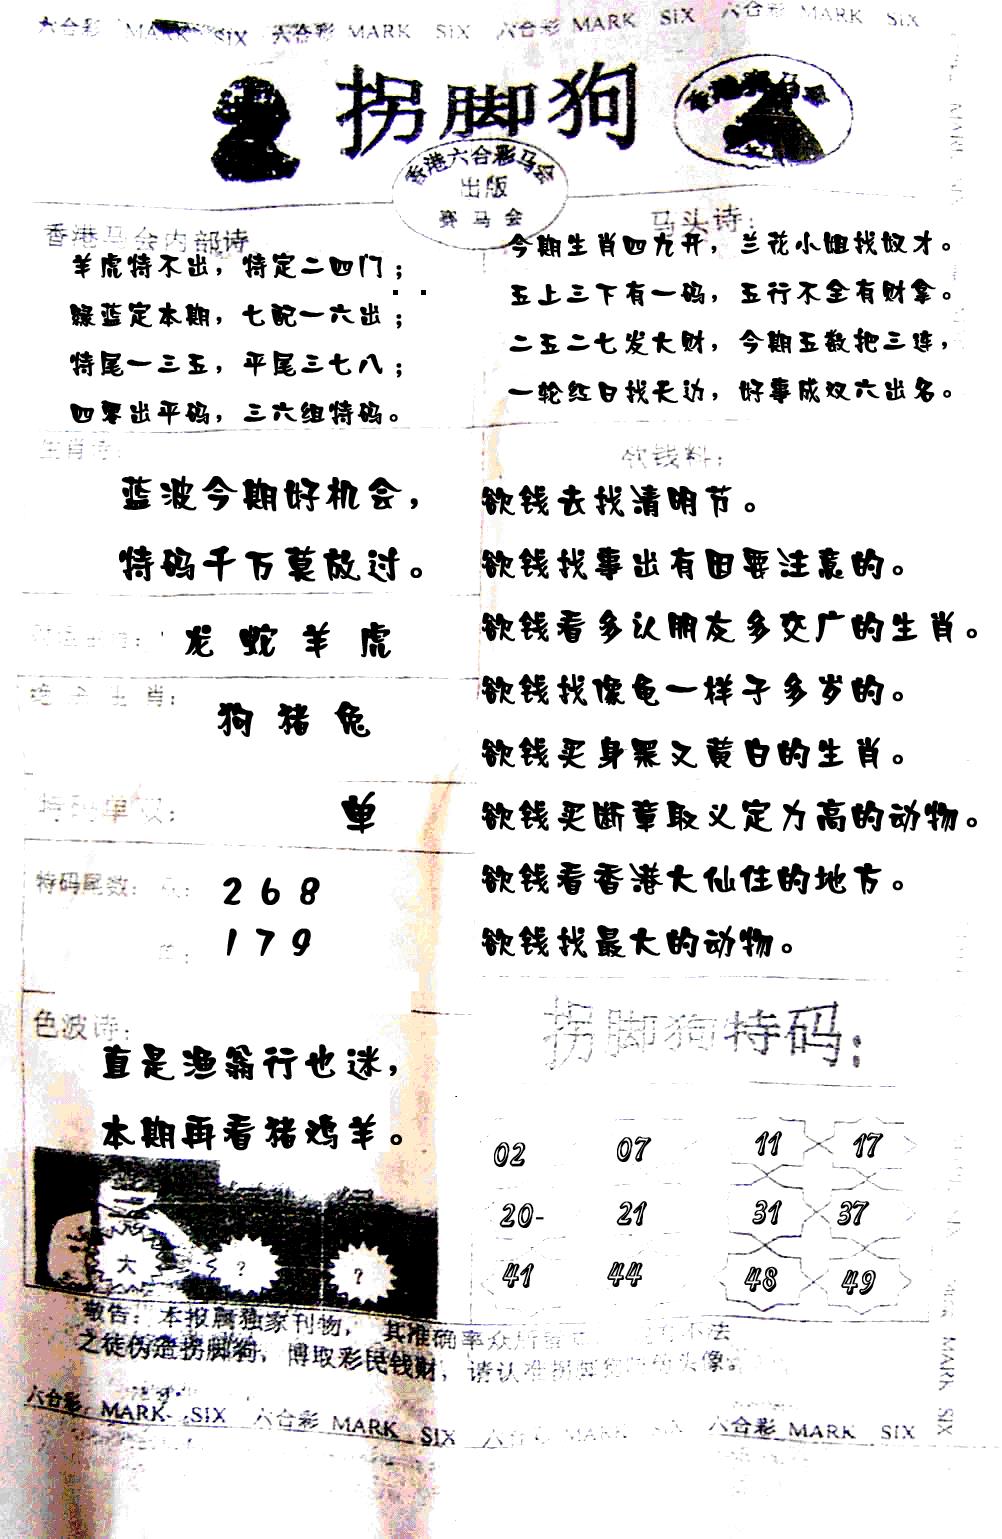 六合彩 MARK SIX 六合彩 MARK SIX 六合彩 MARK SIX 六合彩 MARK SIX
拐脚狗
香港六合彩马会
出版
赛马会
香港马会内部诗
羊虎特不出，特定二四门；
绿蓝定本期，七配一六出；
特尾一三五，平尾三七八；
四零出平码，三六组特码。
马头诗：
今期生肖四九开，兰花小姐找奴才。
五上三下有一码，五行不全有财拿。
二五二七发大财，今期五数把三连，
一轮红日找天边，好事成双六出名。
生肖诗：
蓝波今期好机会，
特码千万莫放过。
龙 蛇 羊 虎
生肖：
狗 猪 兔
特码单双：
单
特码尾数：
2 6 8
1 7 9
色波诗：
直是渔翁行也迷，
本期再看猪鸡羊。
欲钱料：
欲钱去找清明节。
欲钱找事出有因要注意的。
欲钱看多认朋友多交广的生肖。
欲钱找像龟一样子多岁的。
欲钱买身黑又黄白的生肖。
欲钱买断章取义定力高的动物。
欲钱看香港大仙住的地方。
欲钱找最大的动物。
拐脚狗特码：
02 07 11 17
20- 21 31 37
41 44 48 49
大 ? ?
敬告：本报属独家刊物，其准确率众所 不法
之徒伪造拐脚狗，博取彩民钱财，请认准拐脚 头像。
六合彩 MARK SIX 六合彩 MARK SIX 六合彩 MARK SIX 六合彩 MARK SIX
MARK SIX